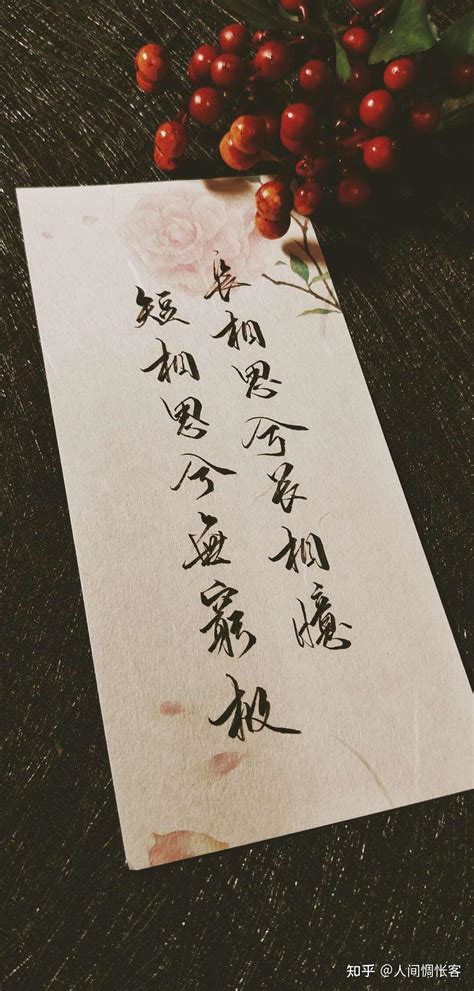 長相思兮长相憶
短相思兮無窮极
知乎 @人间惆怅客